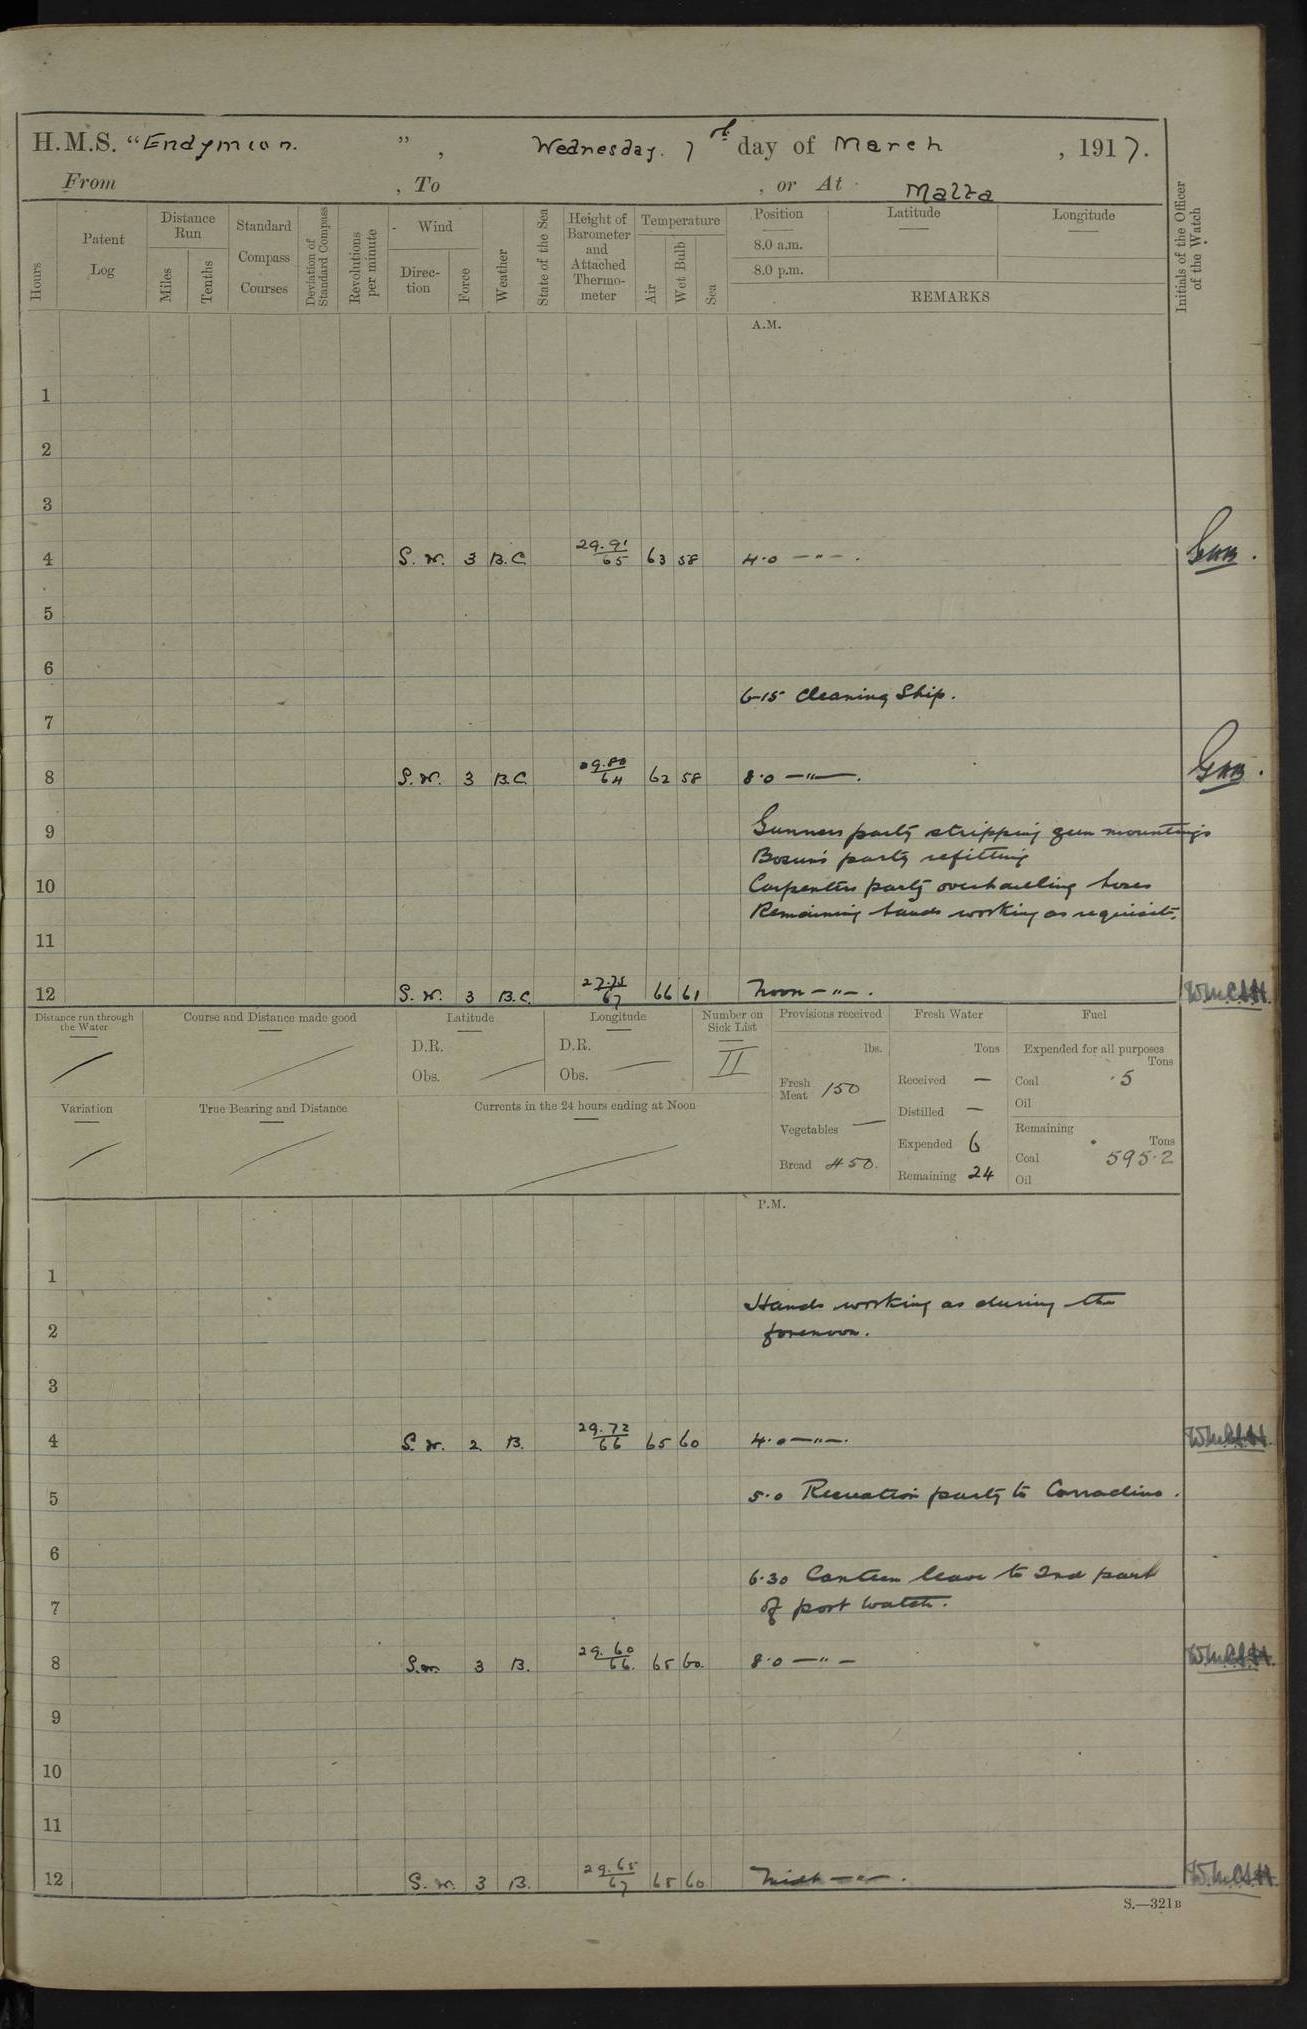 H.M.S. "Endymion. ", Wednesday. 7th day of March, 1917.
From , To , or At Malta
Hours
Patent Log
Distance Run
Miles
Tenths
Standard Compass Courses
Deviation of Standard Compass
Revolutions per minute
Wind
Direction
Force
Weather
State of the Sea
Height of Barometer and Attached Thermometer
Temperature
Air
Wet Bulb
Sea
Position
8.0 a.m.
8.0 p.m.
Latitude
Longitude
REMARKS
Initials of the Officer of the Watch
A.M.
1
2
3
4 S.W. 3 B.C. 29.91/65 63 58 4.0 — " — .
5
6
6-15 Cleaning Ship.
7
8 S.W. 3 B.C. 29.80/64 62 58 8.0 — " — .
9 Gunners party stripping gun mountings
Bosun's party refitting
10 Carpenters party overhauling hoses
Remaining hands working as requisite.
11
12 S.W. 3 B.C. 67 66 61 Noon — " — .
Distance run through the Water
Course and Distance made good
Latitude
D.R.
Obs.
Longitude
D.R.
Obs.
Number on Sick List
II
Provisions received
lbs.
Fresh Meat 150
Vegetables —
Bread 450.
Fresh Water
Tons
Received —
Distilled —
Expended 6
Remaining 24
Fuel
Expended for all purposes
Tons
Coal .5
Oil
Remaining
Tons
Coal 595.2
Oil
Variation
True Bearing and Distance
Currents in the 24 hours ending at Noon
P.M.
1
Hands working as during the
2 forenoon.
3
4 S.W. 2 B. 29.72/66 65 60 4.0 — " — .
5 5.0 Recreation party to Corradino.
6
6.30 Canteen leave to 2nd part
7 of port watch.
8 S.W. 3 B. 29.60/66. 65 60. 8.0 — " —
9
10
11
12 S.W. 3 B. 29.65/67 65 60 Midt — " — .
S.—321B